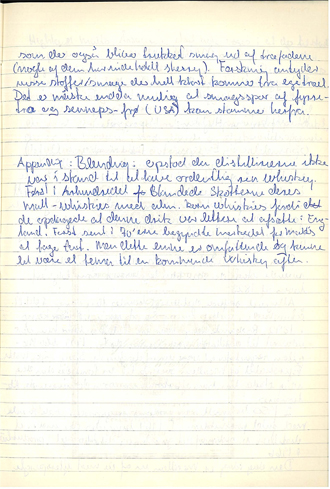 som der også bliver trukket smag ud af træfadene
(nogle af dem har indeholdt sherry). Forskning antyder
visse stoffer/smage der helt klart kommer fra egetræet.
Det er måske endda muligt at smagsspor af fyrre-
træ og sennops-frø (USA) kan stamme herfra.

Appendix: Blending: opstod da distillererne ikke
var i stand til at lave ordentlig ren whiskey.
Først i århundredet blandede skotterne deres
malt-whiskies med alm. korn whiskies fordi det
de opdagede at denne drik var lettere at afsætte i Eng-
land! Først sent i 70'erne begyndte markedet for malts
at tage fart. Men dette emne er omfattende og kunne
let være et tema til en kommende whiskey aften.